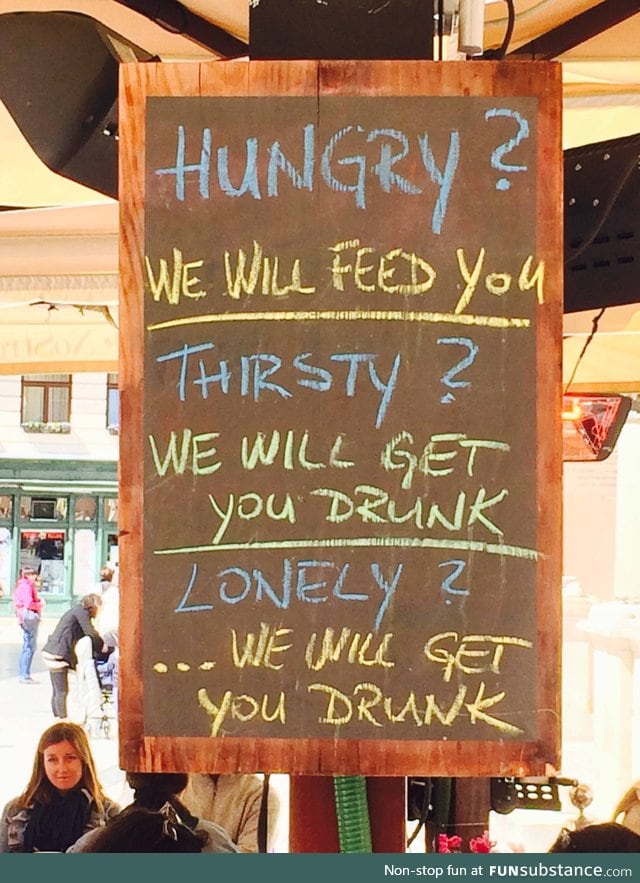 HUNGRY?
WE WILL FEED YOU
THIRSTY?
WE WILL GET
YOU DRUNK
LONELY?
... WE WILL GET
YOU DRUNK
Non-stop fun at FUNsubstance.com